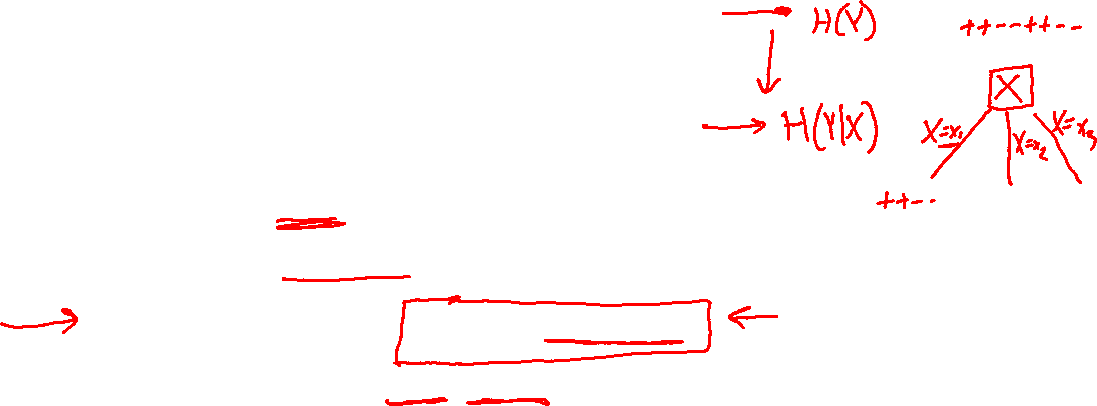 H(Y)
++--++--
X
H(Y|X)
X=x₁
X=x₂
X=x₃
++--